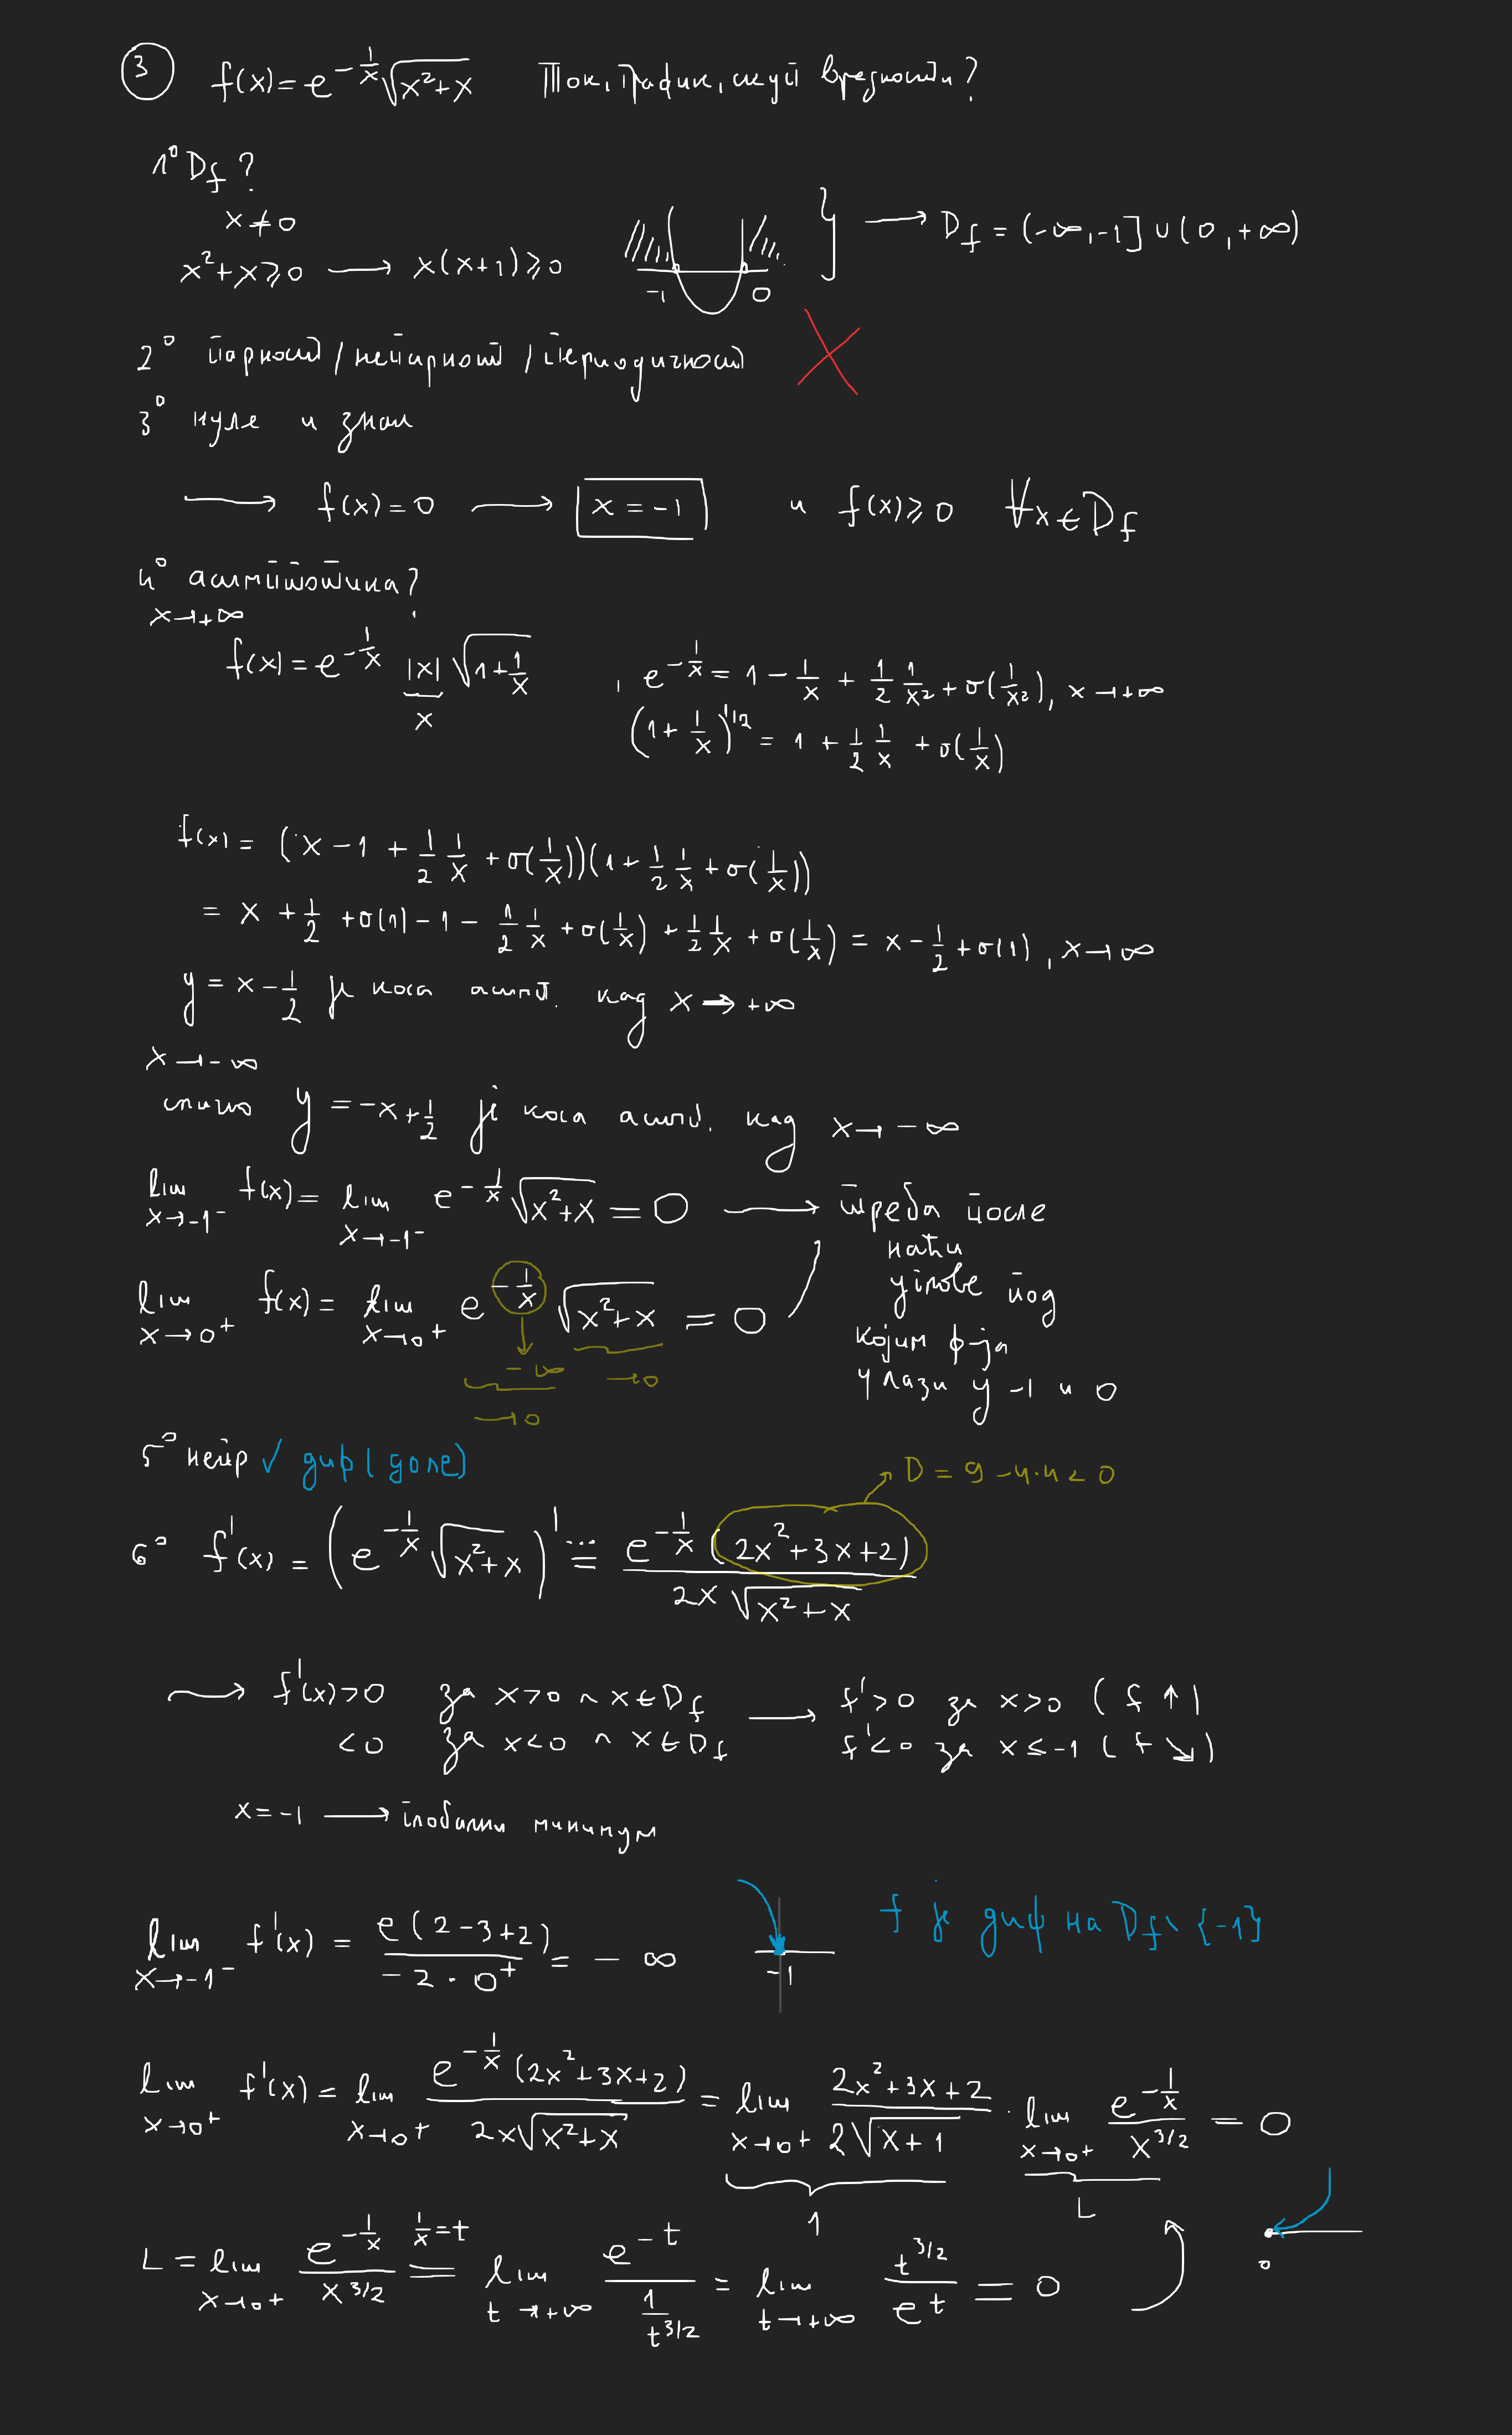 ③ f(x) = e^{-1/x} √(x²+x) Ток, график, скуп вредности?
1° D_f?
x ≠ 0
x²+x ≥ 0 → x(x+1) ≥ 0 -1 0 } → D_f = (-∞, -1] ∪ (0, +∞)
2° парност / непарност / периодичност ✗
3° нуле и знак
→ f(x) = 0 → x = -1 и f(x) ≥ 0 ∀x∈D_f
4° асимптотика?
x → +∞
f(x) = e^{-1/x} |x| √(1+1/x) , e^{-1/x} = 1 - 1/x + 1/2 1/x² + o(1/x²), x → +∞
x (1 + 1/x)^{1/2} = 1 + 1/2 1/x + o(1/x)
f(x) = (x - 1 + 1/2 1/x + o(1/x))(1 + 1/2 1/x + o(1/x))
= x + 1/2 + o(1) - 1 - 1/2 1/x + o(1/x) + 1/2 1/x + o(1/x) = x - 1/2 + o(1), x → ∞
y = x - 1/2 је коса асимп. кад x → +∞
x → -∞
слично y = -x + 1/2 је коса асимп. кад x → -∞
lim_{x→-1⁻} f(x) = lim_{x→-1⁻} e^{-1/x} √(x²+x) = 0 → треба после
наћи
lim_{x→0⁺} f(x) = lim_{x→0⁺} e^{-1/x} √(x²+x) = 0 углове под
којим ф-ја
-∞ →0 улази у -1 и 0
→0
5° непр √ диф (доле)
D = 9 - 4·4 < 0
6° f'(x) = (e^{-1/x} √(x²+x))' =⋯= e^{-1/x} (2x²+3x+2) / 2x√(x²+x)
→ f'(x) > 0 за x > 0 ∧ x∈D_f → f' > 0 за x > 0 (f ↑)
< 0 за x < 0 ∧ x∈D_f f' < 0 за x ≤ -1 (f ↘)
x = -1 → глобални минимум
lim_{x→-1⁻} f'(x) = e(2-3+2) / -2·0⁺ = -∞ -1 f је диф на D_f \ {-1}
lim_{x→0⁺} f'(x) = lim_{x→0⁺} e^{-1/x} (2x²+3x+2) / 2x√(x²+x) = lim_{x→0⁺} 2x²+3x+2 / 2√(x+1) · lim_{x→0⁺} e^{-1/x} / x^{3/2} = 0
1 L
L = lim_{x→0⁺} e^{-1/x} / x^{3/2} =^{1/x=t} lim_{t→+∞} e^{-t} / 1/t^{3/2} = lim_{t→+∞} t^{3/2} / e^t = 0 0